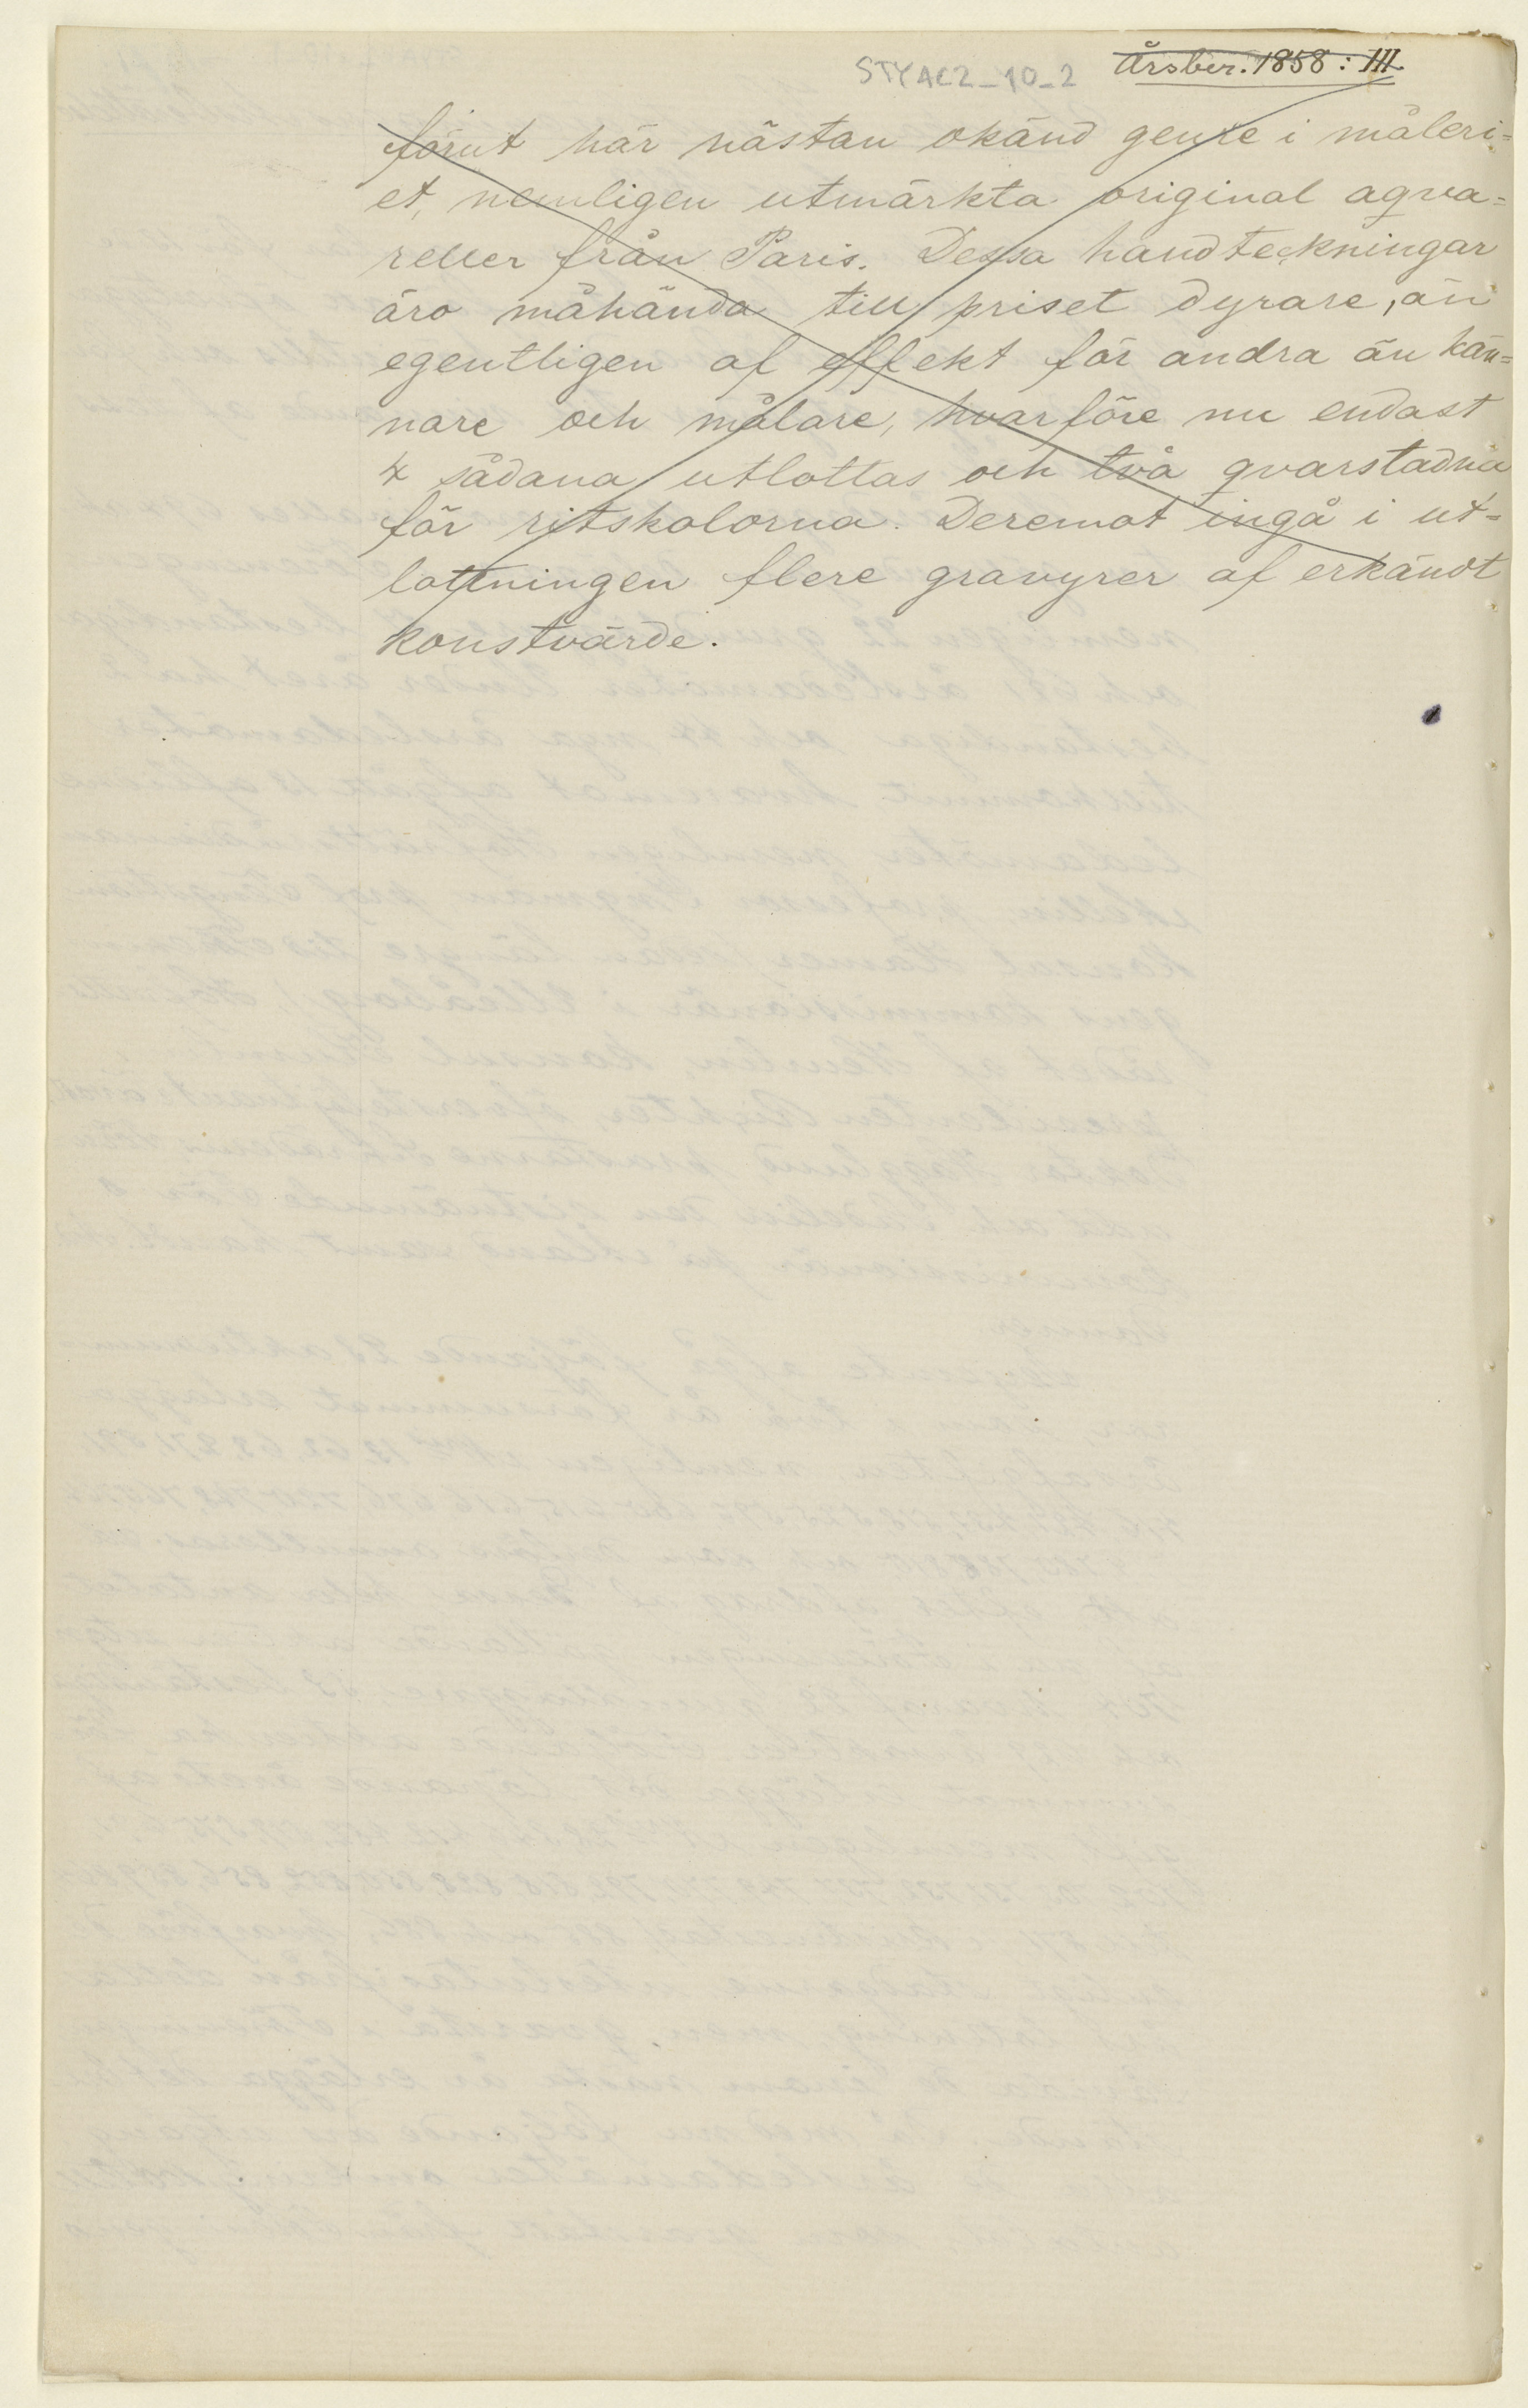 STYAC2_10_2 Årsber. 1858: III
förut här nästan okänd genre i måleri=
et, nemligen utmärkta original aqva=
reller från Paris. Dessa handteckningar
äro måhända till priset dyrare, än
egentligen af effekt för andra än kän=
nare och målare, hvarföre nu endast
4 sådana utlottas och två qvarstadna
för ritskolorna. Deremot ingå i ut=
lottningen flere gravyrer af erkändt
konstvärde.